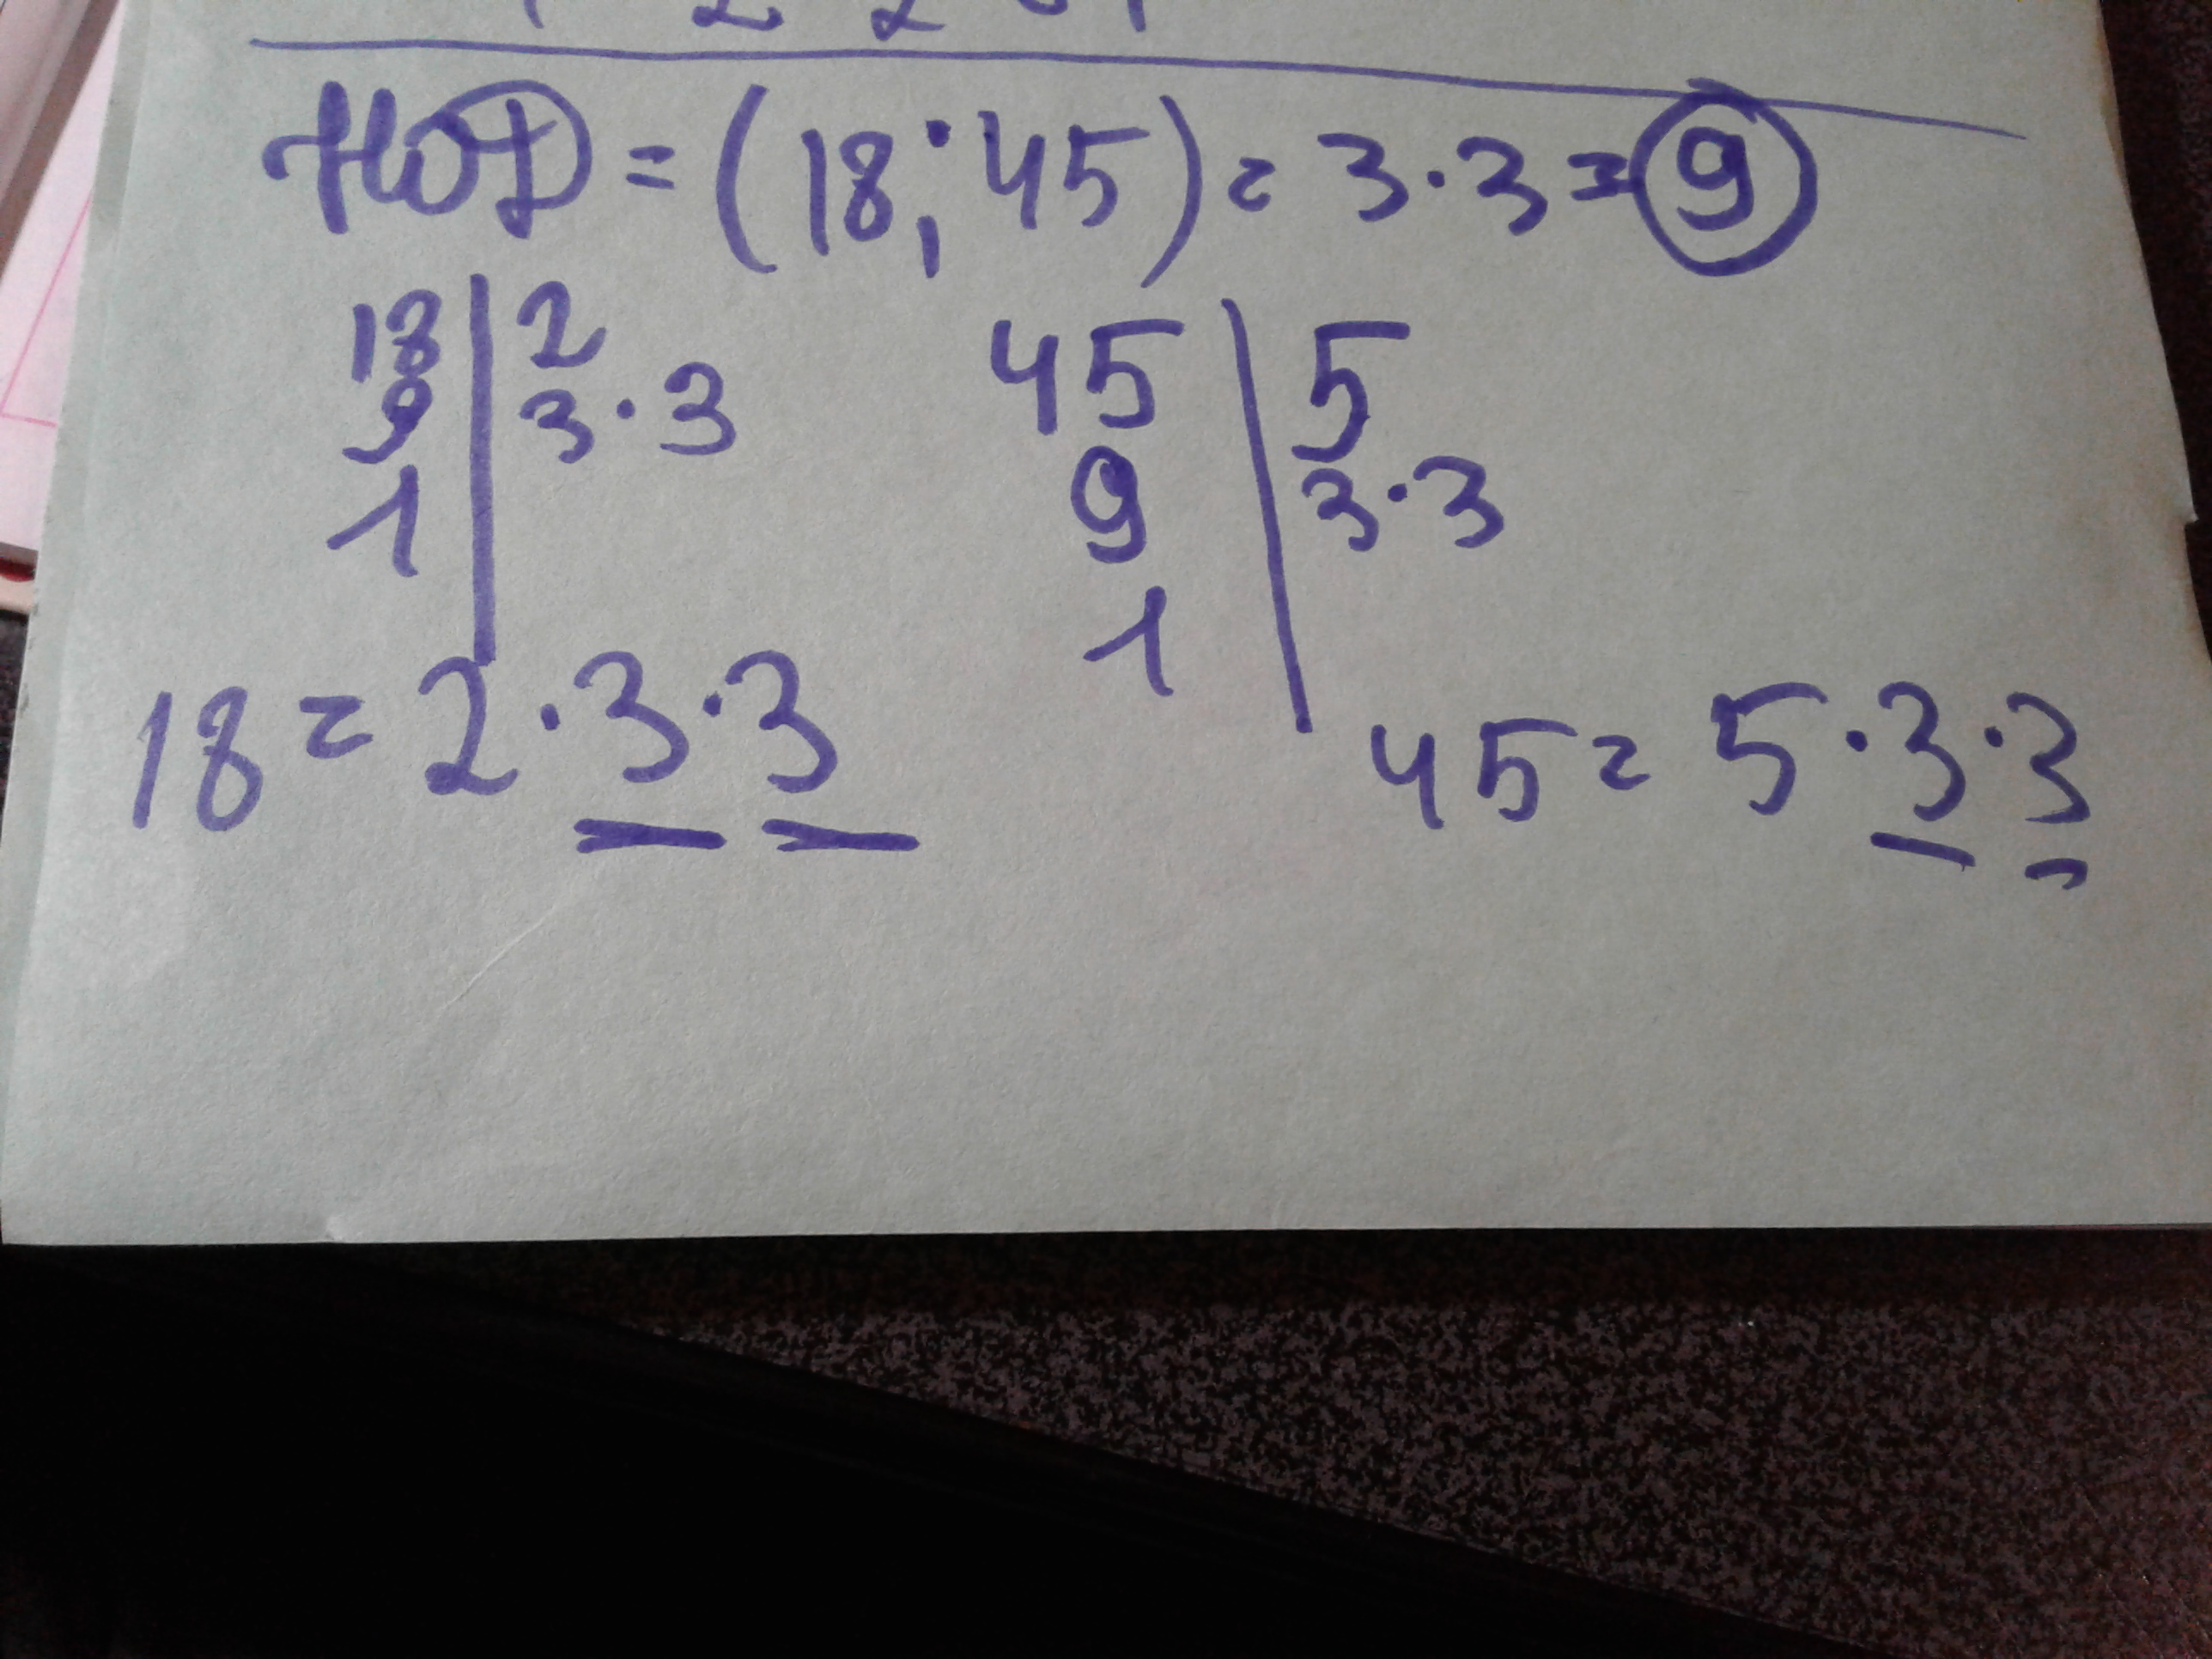 НОД = (18; 45) = 3·3 = 9
18 | 2
9 | 3·3
1
45 | 5
9 | 3·3
1
18 = 2·3·3
45 = 5·3·3